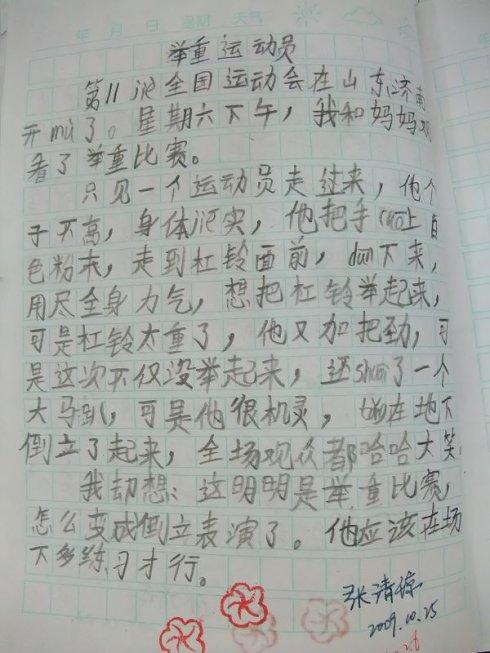 年 月 日 星期 天气
举重运动员
第11jie全国运动会在山东济南
开mù了。星期六下午，我和妈妈观
看了举重比赛。
只见一个运动员走过来，他个
子不高，身体jiē实，他把手cā上白
色粉末，走到杠铃面前，dūn下来，
用尽全身力气，想把杠铃举起来，
可是杠铃太重了，他又加把劲，可
是这次不仅没举起来，还shuāi了一个
大马趴，可是他很机灵，在地下
倒立了起来，全场观众都哈哈大笑
我却想：这明明是举重比赛，
怎么变成倒立表演了。他应该在场
下多练习才行。
张清
2009.10.25